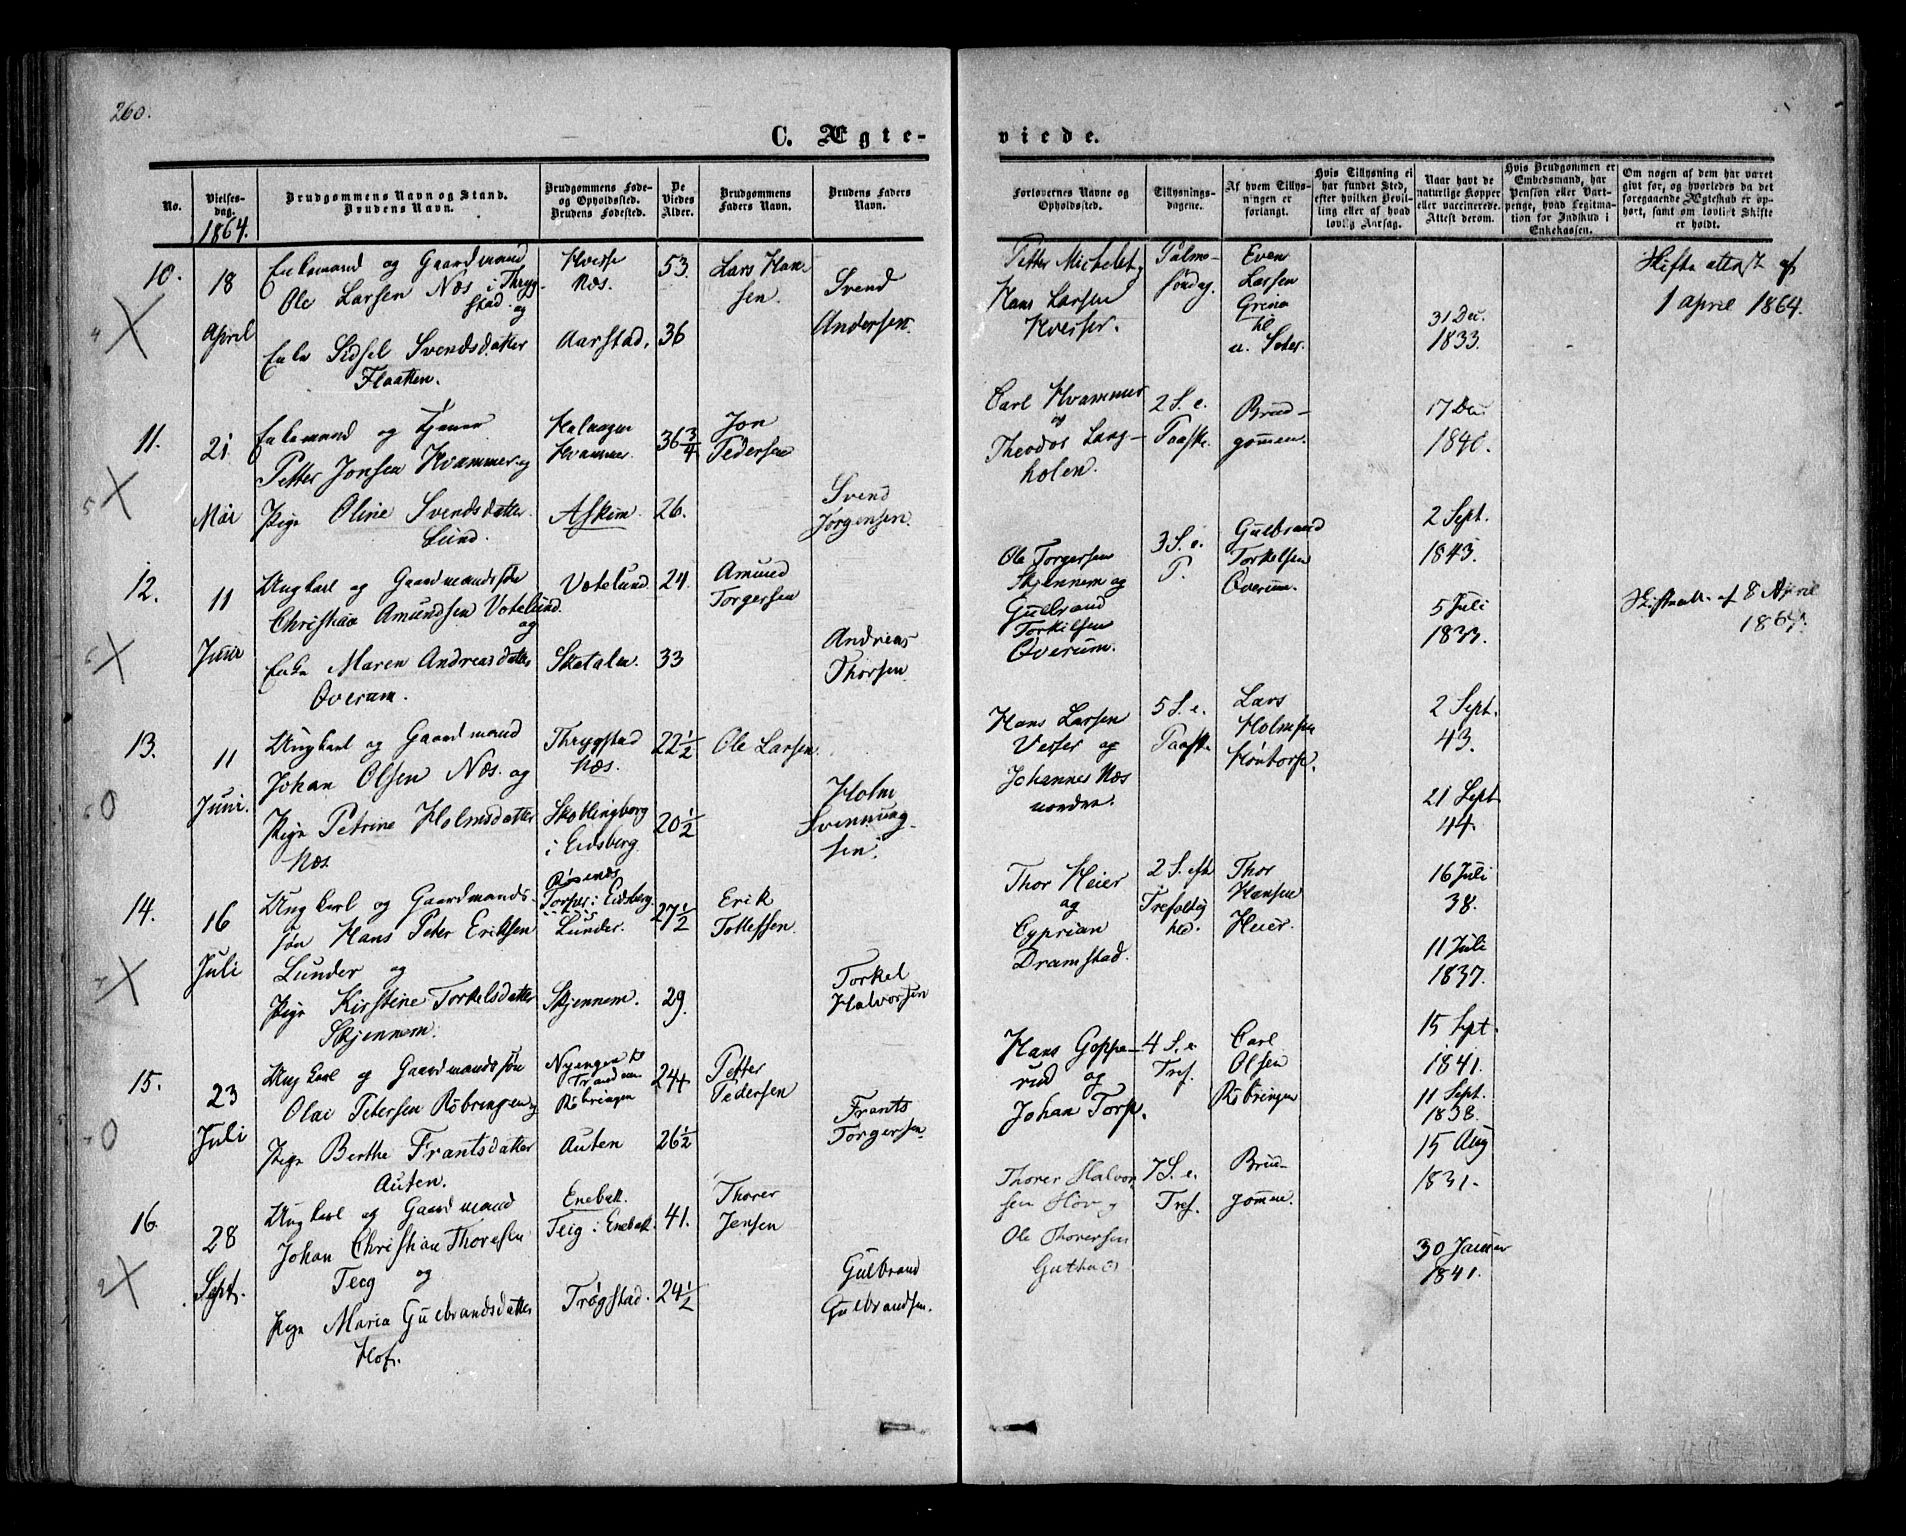 260.
C. Ægte-
viede.
No.
Vielses-
dag.
1864.
Brudgommens Navn og Stand.
Brudens Navn.
Brudgommens Føde-
og Opholdssted.
Brudens Fødested.
De
Viedes
Alder.
Brudgommens
Faders Navn.
Brudens Faders
Navn.
Forlovernes Navne og
Opholdssted.
Tillysnings-
dagene.
Af hvem Tillys-
ningen er
forlangt.
Hvis Tillysning ei
har fundet Sted,
efter hvilken Bevil-
ling eller af hvad
lovlig Aarsag.
Naar havt de
naturlige Kopper
eller vaccinerede.
Attest derom.
Hvis Brudgommen er
Embedsmand, har
Pension eller Vart-
penge, hvad Legitima-
tion for Indskud i
Enkekassen.
Om nogen af dem har været
gift før, og hvorledes da det
foregaaende Ægteskab er op-
hørt, samt om lovligt Skifte
er holdt.
10.
18
April
Enkemand og Gaardmand
Ole Larsen Næs i Thryg-
stad og
Enke Sidsel Svendsdatter
Flaatten.
Næs.
Aarstad.
53.
36
Lars Han-
sen.
Svend
Andersen.
Petter Michelet
Hans Larsen
Palme-
søndag.
Even
Larsen
31 Dec.
1833.
Skifte attest af
1 april 1864.
11.
21
Mai
Enkemand og
Petter Jonsen Kvammer og
Pige Oline Svendsdatter
Lund.
Kvammer.
Askim.
36 3/4
26.
Jon
Pedersen
Svend
Jørgensen.
Carl Kvammer
og
Theodor Lang-
holen.
2 S. e.
Paaske.
Brud-
gommen.
17 Dec.
1840.
2 Sept.
1843.
12.
11
Juni
Ungkarl og Gaardmandssøn
Christian Amundsen Votelund
og
Enke Maren Andreasdatter
Overum.
Votelund
Sketalen.
24.
33
Amund
Torgersen
Andreas
Thorsen
Ole Torgersen
Skjennem og
Gulbrand
Torkilsen
Overum.
3 S. e.
P.
Gulbrand
Torkelsen
Overum.
5 Juli
1833.
Skifteatt. af 8 April
1864.
13.
11
Juni.
Ungkarl og Gaardmand
Johan Olsen Næs. og
Pige Petrine Holmsdatter
Næs.
Thrygstad
Næs.
i Eidsberg
22 1/2
20 1/2
Ole Larsen.
Holm
Svennung-
sen.
Hans Larsen
og
Johannes Næs
nordre.
5 S. e.
Paaske
Lars
Holmsen
2 Sept.
43.
21 Sept
44.
14.
16
Juli
Ungkarl og Gaardmands-
søn Hans Peter Eriksen
Lunder og
Pige Kirstine Torkelsdatter
Skjennem.
i Eidsberg
Lunder.
Skjennem.
27 1/2
29.
Erik
Torkel
Halvorsen
Thor Heier
og
Cyprian
Dramstad.
2 S. eft
Trefoldig
hed.
Thor
Hansen
Heier.
16 Juli
38.
11 Juli
1837.
15.
23
Juli
Ungkarl og Gaardmandssøn
Olai Petersen Røbringen og
Pige Berthe Frantsdatter
Auten.
Røbringen
Auten
24
26 1/2
Petter
Pedersen
Frants
Torgersen
Hans Goppe-
rud og
Johan Torp.
4 S. e.
Tref.
Carl
Olsen
Røbringen
15 Sept.
1841.
11 Sept.
1838.
16.
28
Sept.
Ungkarl og Gaardmand
Johan Christian Thoresen
Teig og
Pige Maria Gulbrandsdatter
Hof.
Enebak.
Teig i Enebak.
Trøgstad.
41.
24 1/2
Thorer
Jensen
Gulbrand
Gulbrandsen.
Thorer Halvor-
sen Hov og
Ole Thoresen
7 S. e.
Tref.
Brud-
gommen.
15 Aug
1831.
30 Januar
1841.